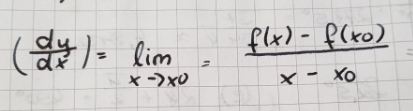 (dy/dx) = lim x->x0 = f(x) - f(x0) / x - x0 =